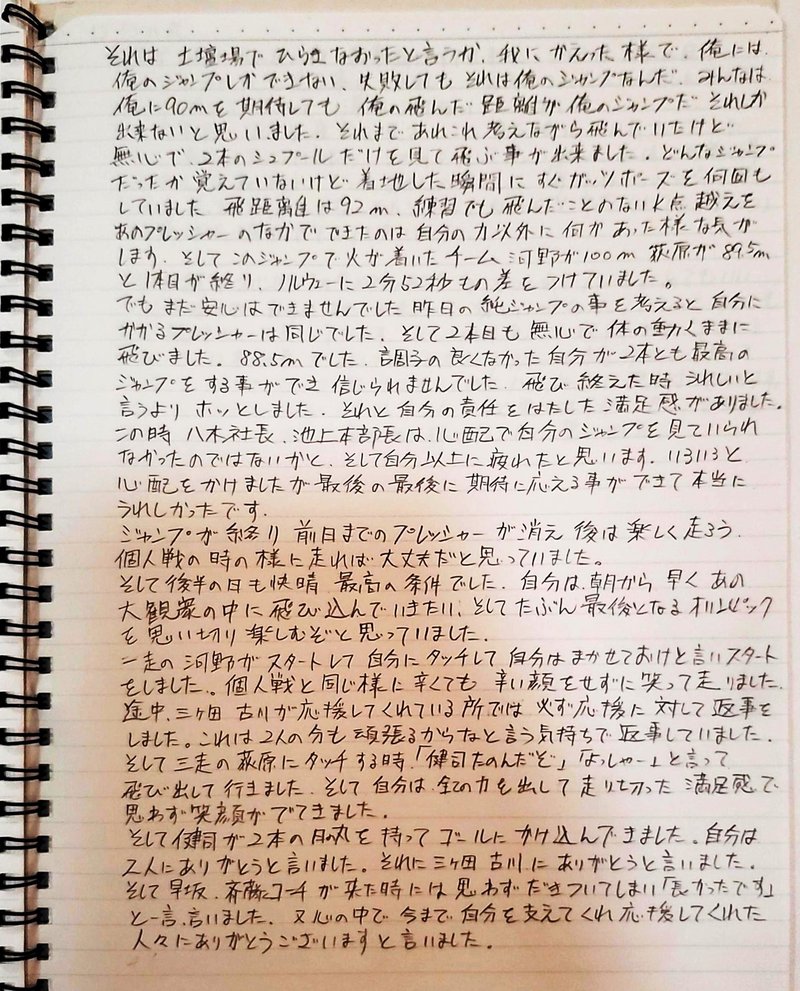 それは 土壇場で ひらきなおったと言うか、我に かえった 様で、俺には
俺のジャンプしか できない、失敗しても それは俺のジャンプなんだ、みんなは
俺に90mを 期待しても 俺の飛んだ 距離が 俺のジャンプだ それしか
出来ないと思いました、それまで あれこれ 考えながら 飛んでいたけど
無心で、2本のシュプール だけを見て 飛ぶ事が 出来ました。どんなジャンプ
だったか 覚えていないけど 着地した 瞬間に すぐ ガッツポーズを 何回も
していました 飛距離は92m、練習でも 飛んだことのない K点越えを
あのプレッシャーの なかで できたのは 自分の力以外に 何か あった 様な気が
します、そして このジャンプで 火が着いた チーム 河野が100m 荻原が89.5m
と1本目が終り、ノルウェーに2分52秒もの差を つけていました。
でも まだ安心は できませんでした 昨日の 純ジャンプの事を考えると 自分に
かかるプレッシャーは 同じでした、そして2本目も 無心で 体の動くままに
飛びました。88.5mでした、調子の 良くなかった 自分が 2本とも 最高の
ジャンプを する事ができ 信じられませんでした、飛び 終えた時 うれしいと
言うより ホッとしました、それと 自分の責任を はたした 満足感がありました。
この時 八木社長、池上本部長は、心配で 自分の ジャンプを見ていられ
なかったのではないかと、そして自分以上に 疲れたと思います、いろいろと
心配を かけましたが 最後の最後に 期待に応える事が できて 本当に
うれしかったです。
ジャンプが 終り 前日までの プレッシャーが消え 後は 楽しく走ろう、
個人戦の時の様に走れば 大丈夫だと思っていました。
そして後半の日も快晴 最高の 条件でした、自分は、朝から 早く あの
大観衆の中に 飛び 込んでいきたい、そして たぶん 最後となる オリンピック
を 思い切り 楽しむぞと思っていました。
一走の 河野が スタートして 自分に タッチして 自分は まかせておけと言い スタート
をしました。個人戦と同じ様に 辛くても 辛い顔を せずに 笑って走りました、
途中、三ヶ田 古川が応援してくれている 所では 必ず応援に 対して 返事を
しました。これは 2人の分も 頑張るからなと言う 気持ちで 返事していました、
そして 三走の 荻原に タッチ する時、「健司 たのんだぞ」「よっしゃー」と言って
飛び出して 行きました、そして 自分は、全ての力を出して 走り切った 満足感で
思わず 笑顔が でてきました。
そして健司が 2本の 日の丸を 持って ゴールに かけ込んできました、自分は
2人に ありがとうと言いました。それに 三ヶ田 古川に ありがとうと言いました、
そして 早坂、斉藤コーチ が来た時には 思わず だきついてしまい「長かったです」
と一言、言いました、又 心の中で 今まで 自分を 支えてくれ 応援してくれた
人々に ありがとうございますと言いました。